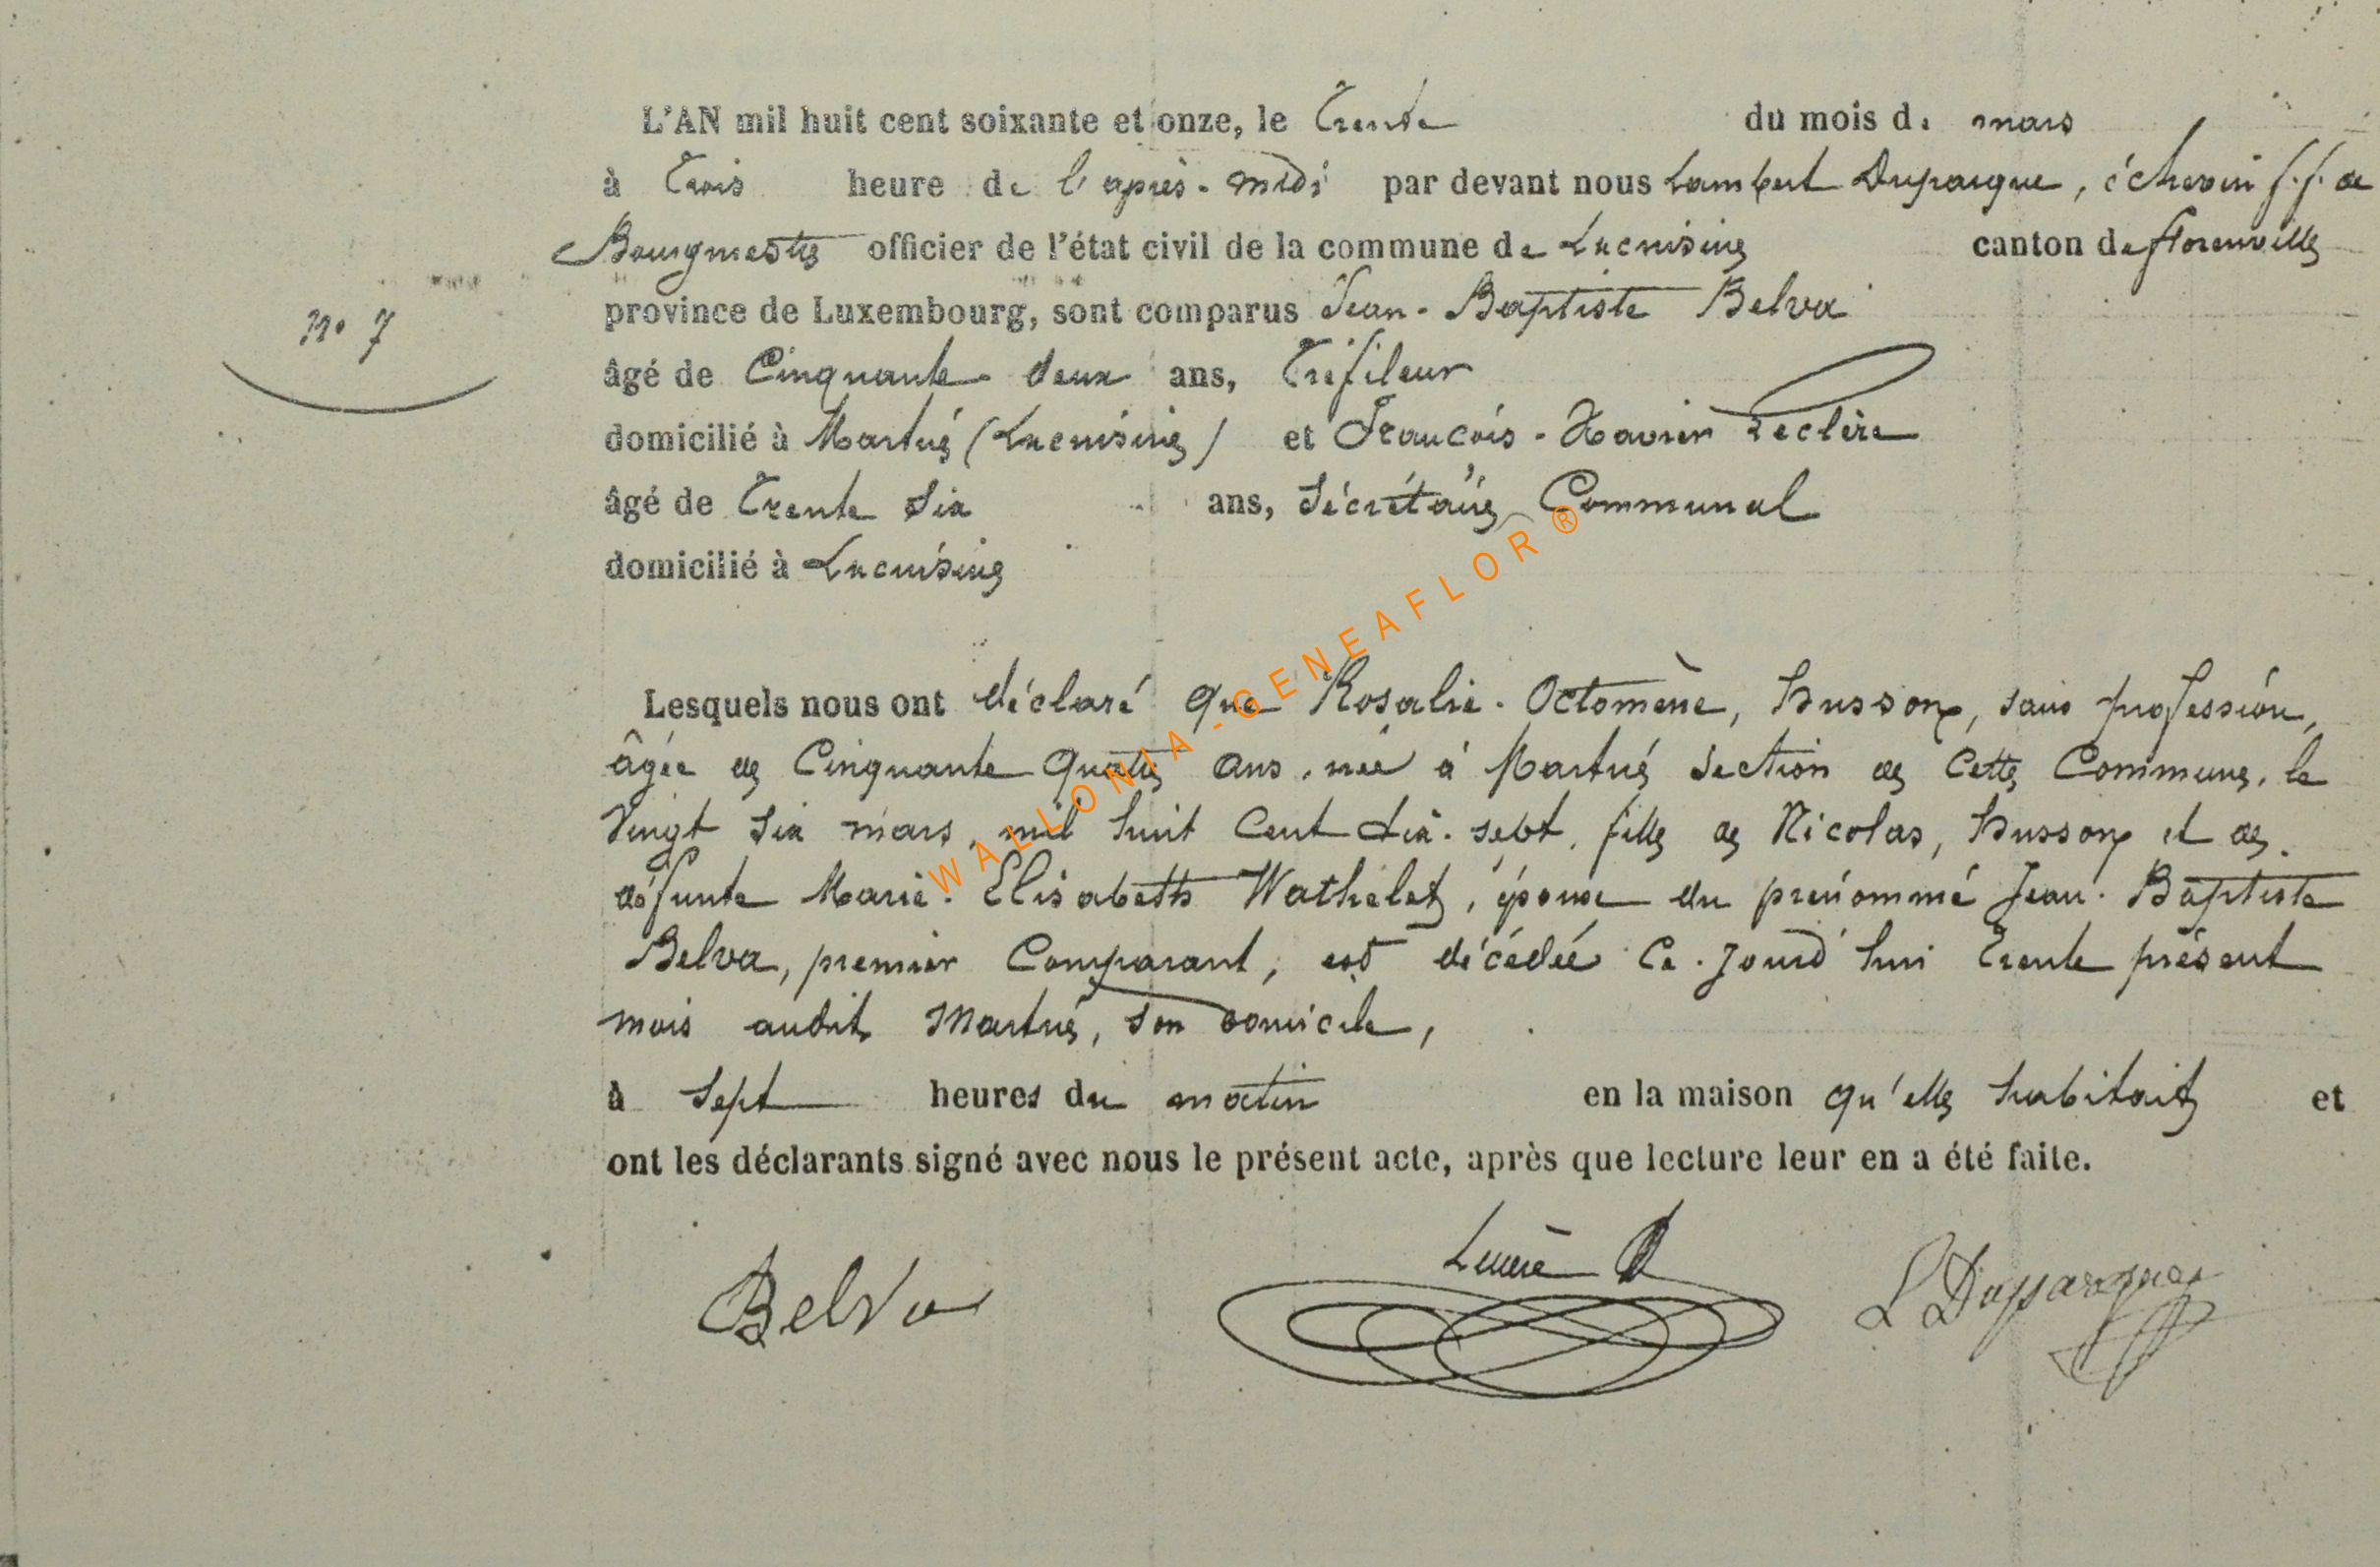 L'AN mil huit cent soixante et onze, le Trente du mois de mars
à Trois heure de l'après-midi par devant nous Lambert Duparque, échevin f.f. de
Bourgmestre officier de l'état civil de la commune de Lacuisine canton de florenville
N° 7
province de Luxembourg, sont comparus Jean-Baptiste Belva
âgé de Cinquante deux ans, Tréfileur
domicilié à Martué (Lacuisine) et François-Xavier Leclère
âgé de Trente Six ans, Sécrétaire Communal
domicilié à Lacuisine
Lesquels nous ont déclaré que Rosalie-Octomène, Husson, sans profession,
âgée de Cinquante Quatre ans, née à Martué Section de Cette Commune, le
Vingt Six mars, mil huit Cent dix-sept, fille de Nicolas, Husson et de
défunte Marie-Elisabeth Wathelet, épouse du prénommé Jean-Baptiste
Belva, premier Comparant, est décédée Ce-jourd'hui Trente présent
mois audit Martué, son domicile,
à Sept heures du matin en la maison qu'elle habitait et
ont les déclarants signé avec nous le présent acte, après que lecture leur en a été faite.
Belva Leclère L Duparque
WALLONIA-GENEAFLOR®